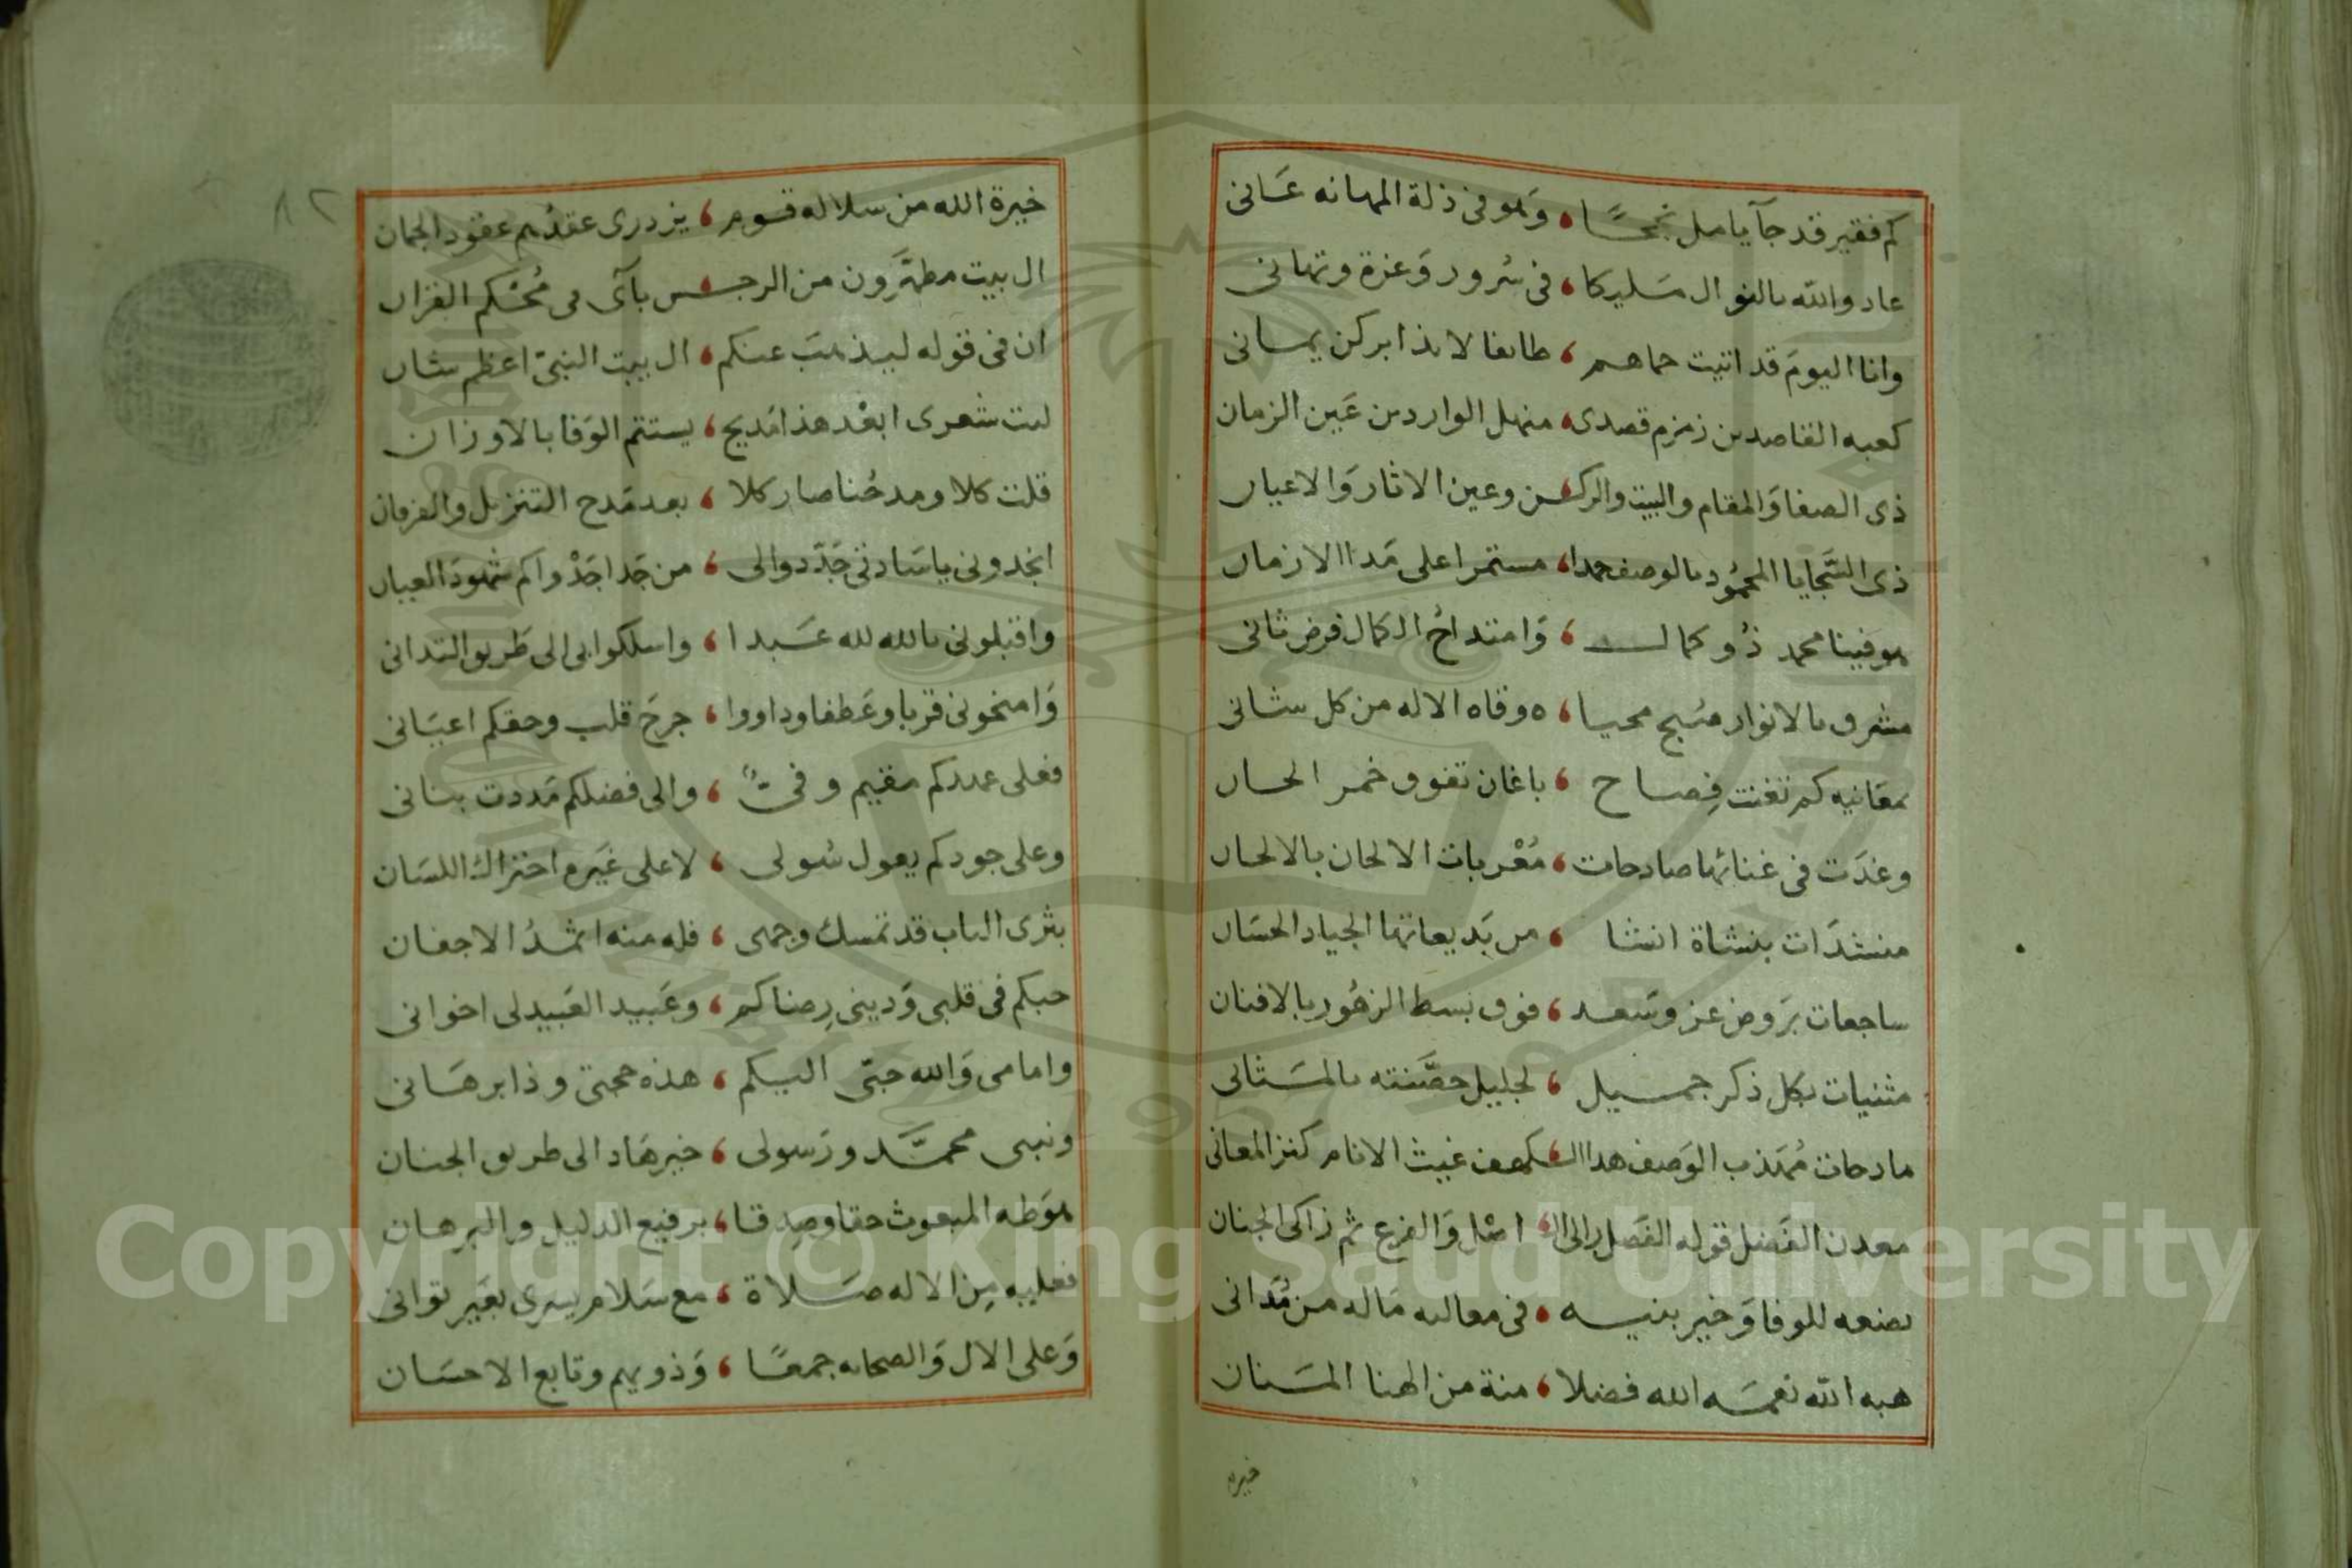 كم فقير قد جآ يامل نجحًا ، وَهو فى ذلة المهانه عَانى
عاد والله بالنوال مَليكا ، فى سُرور وَعزة وتهانى
وانا اليومَ قد اتيت حماهم ، طائفا لائذا بركن يمانى
كعبه القاصدين زمزم قصدى ، منهل الواردين عَين الزمان
ذى الصفا وَالمقام والبيت والركن وعين الاثار وَالاعيان
ذى السَّجايا المحمُود بالوصف حمدا ، مستمرا على مَدا الازمان
هو فينا محمد ذُو كمال ، وَامتداحُ الكمال فرض ثانى
مشرق بالانوار صُبح محيا ، ه وقاه الاله من كل شانى
بمعَانيه كم تغنت فِصاح ، باغان تفوق خمر الحان
وغدَت فى غنائها صادحات ، مُعْربات الالحان بالالحان
منشدَات بنشاة انشا ، من بَديعاتها الجياد الحسَان
ساجعات برَوض عز وسَعد ، فوق بسط الزهُور بالافنان
مثنيات بكل ذكر جميل ، لجليل حصَّنته بالمَثانى
مادحات مُهَذب الوَصف هدا الكهف غيث الانام كنز المعانى
معدن الفَضل قوله الفَصل زاكى الاصْل وَالفرع ثم زاكى الجنان
بضعه للوفا وَخير بنيه ، فى معاليه مَاله من مُدَانى
هبه الله نعمَه الله فضلا ، منة من الهنا المَنان
خيره
٨٢
خيرة الله من سلاله قوم ، يزدرى عقدُهم عقود الجمان
ال بيت مطهَّرون من الرجس بآى فى مُحْكم القران
ان فى قوله ليذهبَ عنكم ، ال بيت النبىّ اعظم شان
ليت شعرى ابعْد هذا مَديح ، يستتم الوَفا بالاوزان
قلت كلا ومدحُنا صار كلا ، بعد مَدح التنزيل والفرقان
انجدونى ياسَادتى جَدّدوا لى ، من جَدا جَدْواكم شهودَ العيان
واقبلونى بالله لله عَبدا ، واسلكوا بى الى طَريق التدانى
وَامنحونى قربا وعَطفا وداووا ، جرحَ قلب وحقكم اعيَانى
فعلى عهدكم مقيم وفىٌّ ، والى فضلكم مَددت بنانى
وعلى جودكم يعول سُولى ، لا على غَيره احتراك اللسَان
بثرى الباب قد تمسك وجهى ، فله منه اثمدُ الاجفان
حبكم فى قلبى وَدينى رِضاكم ، وعَبيد العَبيد لى اخوانى
وامامى وَالله حبّى اليكم ، هذه حجتى وذا برهَانى
ونبيى محمَّد ورَسولى ، خير هَاد الى طريق الجنان
هوَ طه المبعوث حقا وصِدقا ، برفيع الدليل والبرهان
فعليه مِن الاله صَلاة ، مع سَلام يسرى بغَير توانى
وَعلى الال وَالصحابه جمعًا ، وَذويهم وتابع الاحسَان
Copyright © King Saud University
1957